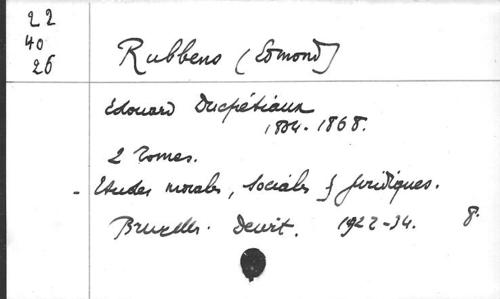 22
40
26
Rubbens (Edmond)
Edouard Ducpétiaux
1804-1868.
2 Tomes.
- Etudes morales, sociales & juridiques.
Bruxelles. Dewit. 1922-34. 8.